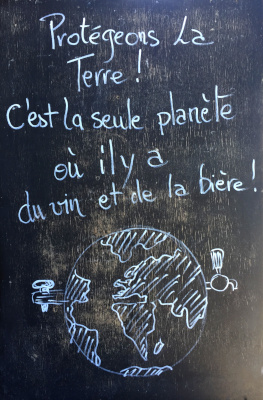 Protégeons La
Terre !
C'est la seule planète
où il y a
du vin et de la bière !